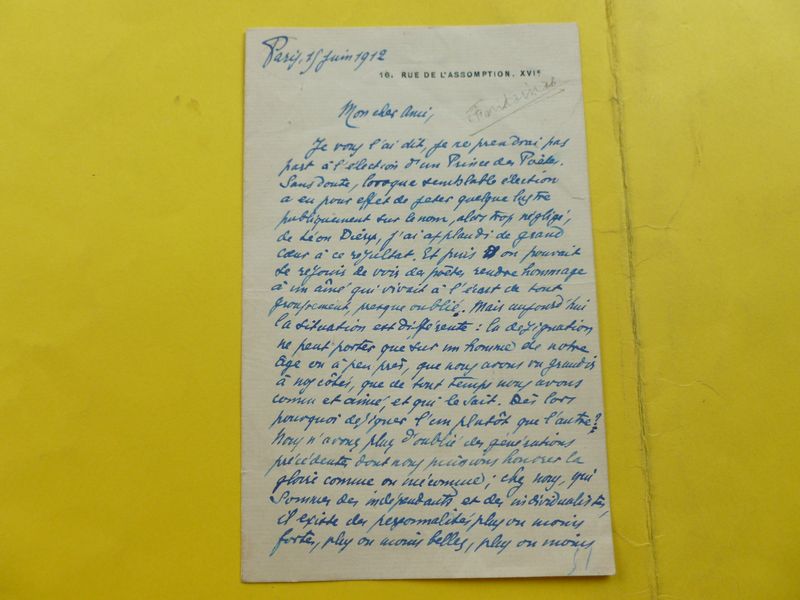 Paris, 15 juin 1912
16, RUE DE L'ASSOMPTION, XVIe
Fontainas
Mon cher Ami,
Je vous l'ai dit, je ne prendrai pas
part à l'élection d'un Prince des Poètes.
Sans doute, lorsque semblable élection
a eu pour effet de jeter quelque lustre
publiquement sur le nom, alors trop négligé,
de Léon Dierx, j'ai applaudi de grand
cœur à ce résultat. Et puis on pouvait
se réjouir de voir des poètes rendre hommage
à un aîné qui vivait à l'écart de tout
groupement, presque oublié. Mais aujourd'hui
la situation est différente : la désignation
ne peut porter que sur un homme de notre
âge ou à peu près, que nous avons vu grandir
à nos côtés, que de tout temps nous avons
connu et aimé, et qui le sait. Dès lors
pourquoi désigner l'un plutôt que l'autre ?
Nous n'avons plus d'oublié des générations
précédentes dont nous puissions honorer la
gloire comme on méconnue ; chez nous, qui
sommes des indépendants et des individualistes,
il existe des personnalités plus ou moins
fortes, plus ou moins belles, plus ou moins